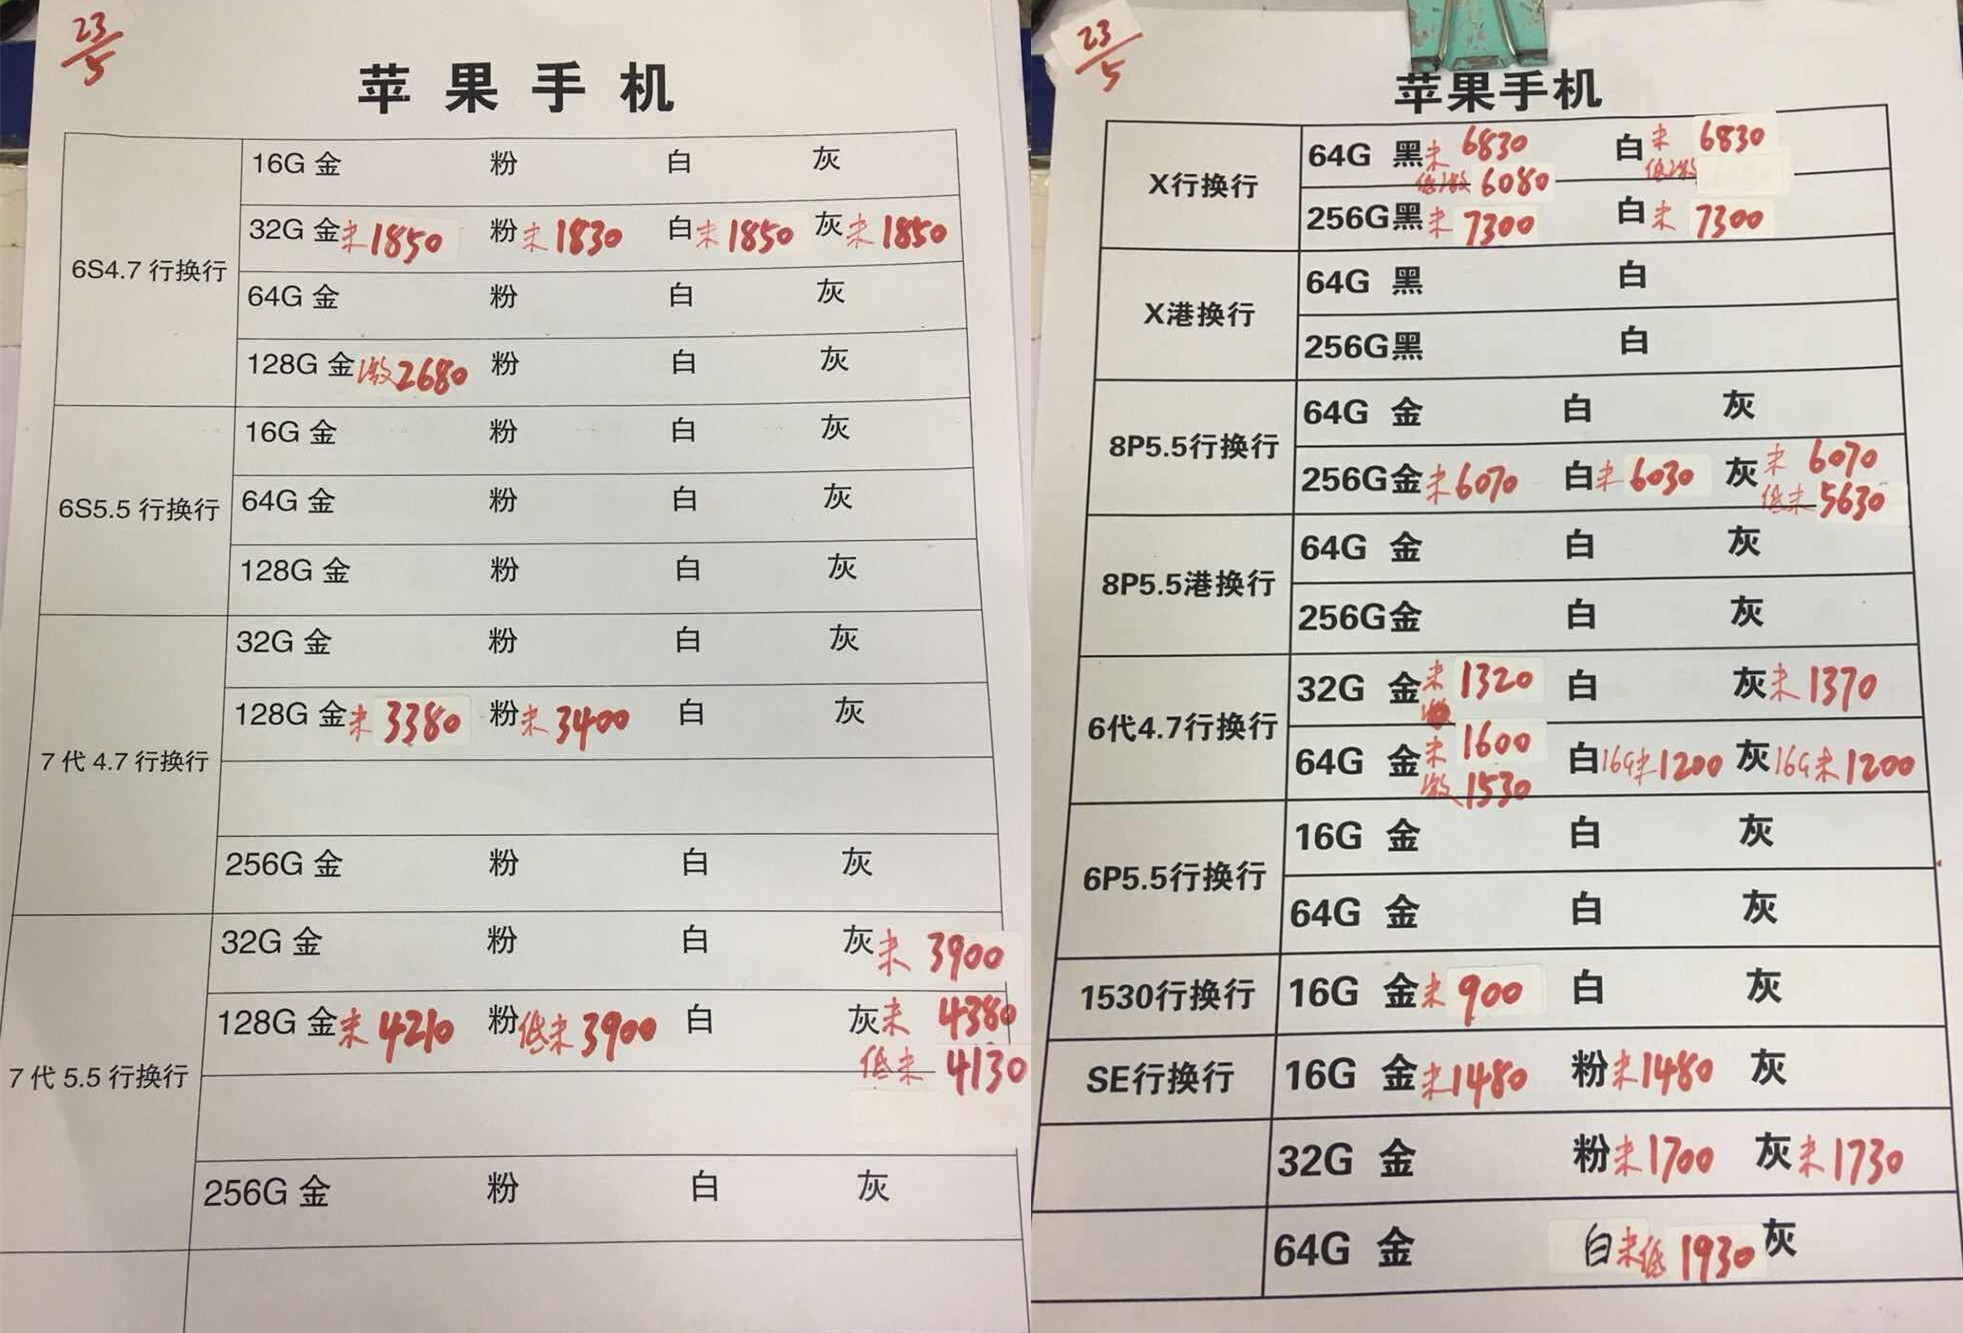 23/5
苹果手机
6S4.7 行换行
16G 金 粉 白 灰
32G 金 未1850 粉 未1830 白 未1850 灰 未1850
64G 金 粉 白 灰
128G 金 激2680 粉 白 灰
6S5.5 行换行
16G 金 粉 白 灰
64G 金 粉 白 灰
128G 金 粉 白 灰
7代 4.7 行换行
32G 金 粉 白 灰
128G 金 未3380 粉 未3400 白 灰
256G 金 粉 白 灰
7代 5.5 行换行
32G 金 粉 白 灰 未3900
128G 金 未4210 粉 低未3900 白 灰 未4380
低未4130
256G 金 粉 白 灰
23/5
苹果手机
X行换行
64G 黑 未6830 白 未6830
低激6080 低激
256G黑 未7300 白 未7300
X港换行
64G 黑 白
256G黑 白
8P5.5行换行
64G 金 白 灰
256G金 未6070 白 未6030 灰 未6070
低未5630
8P5.5港换行
64G 金 白 灰
256G金 白 灰
6代4.7行换行
32G 金 未1320 白 灰 未1370
64G 金 未1600 白 16G未1200 灰 16G未1200
激1530
6P5.5行换行
16G 金 白 灰
64G 金 白 灰
1530行换行
16G 金 未900 白 灰
SE行换行
16G 金 未1480 粉 未1480 灰
32G 金 粉 未1700 灰 未1730
64G 金 白 未低1930 灰